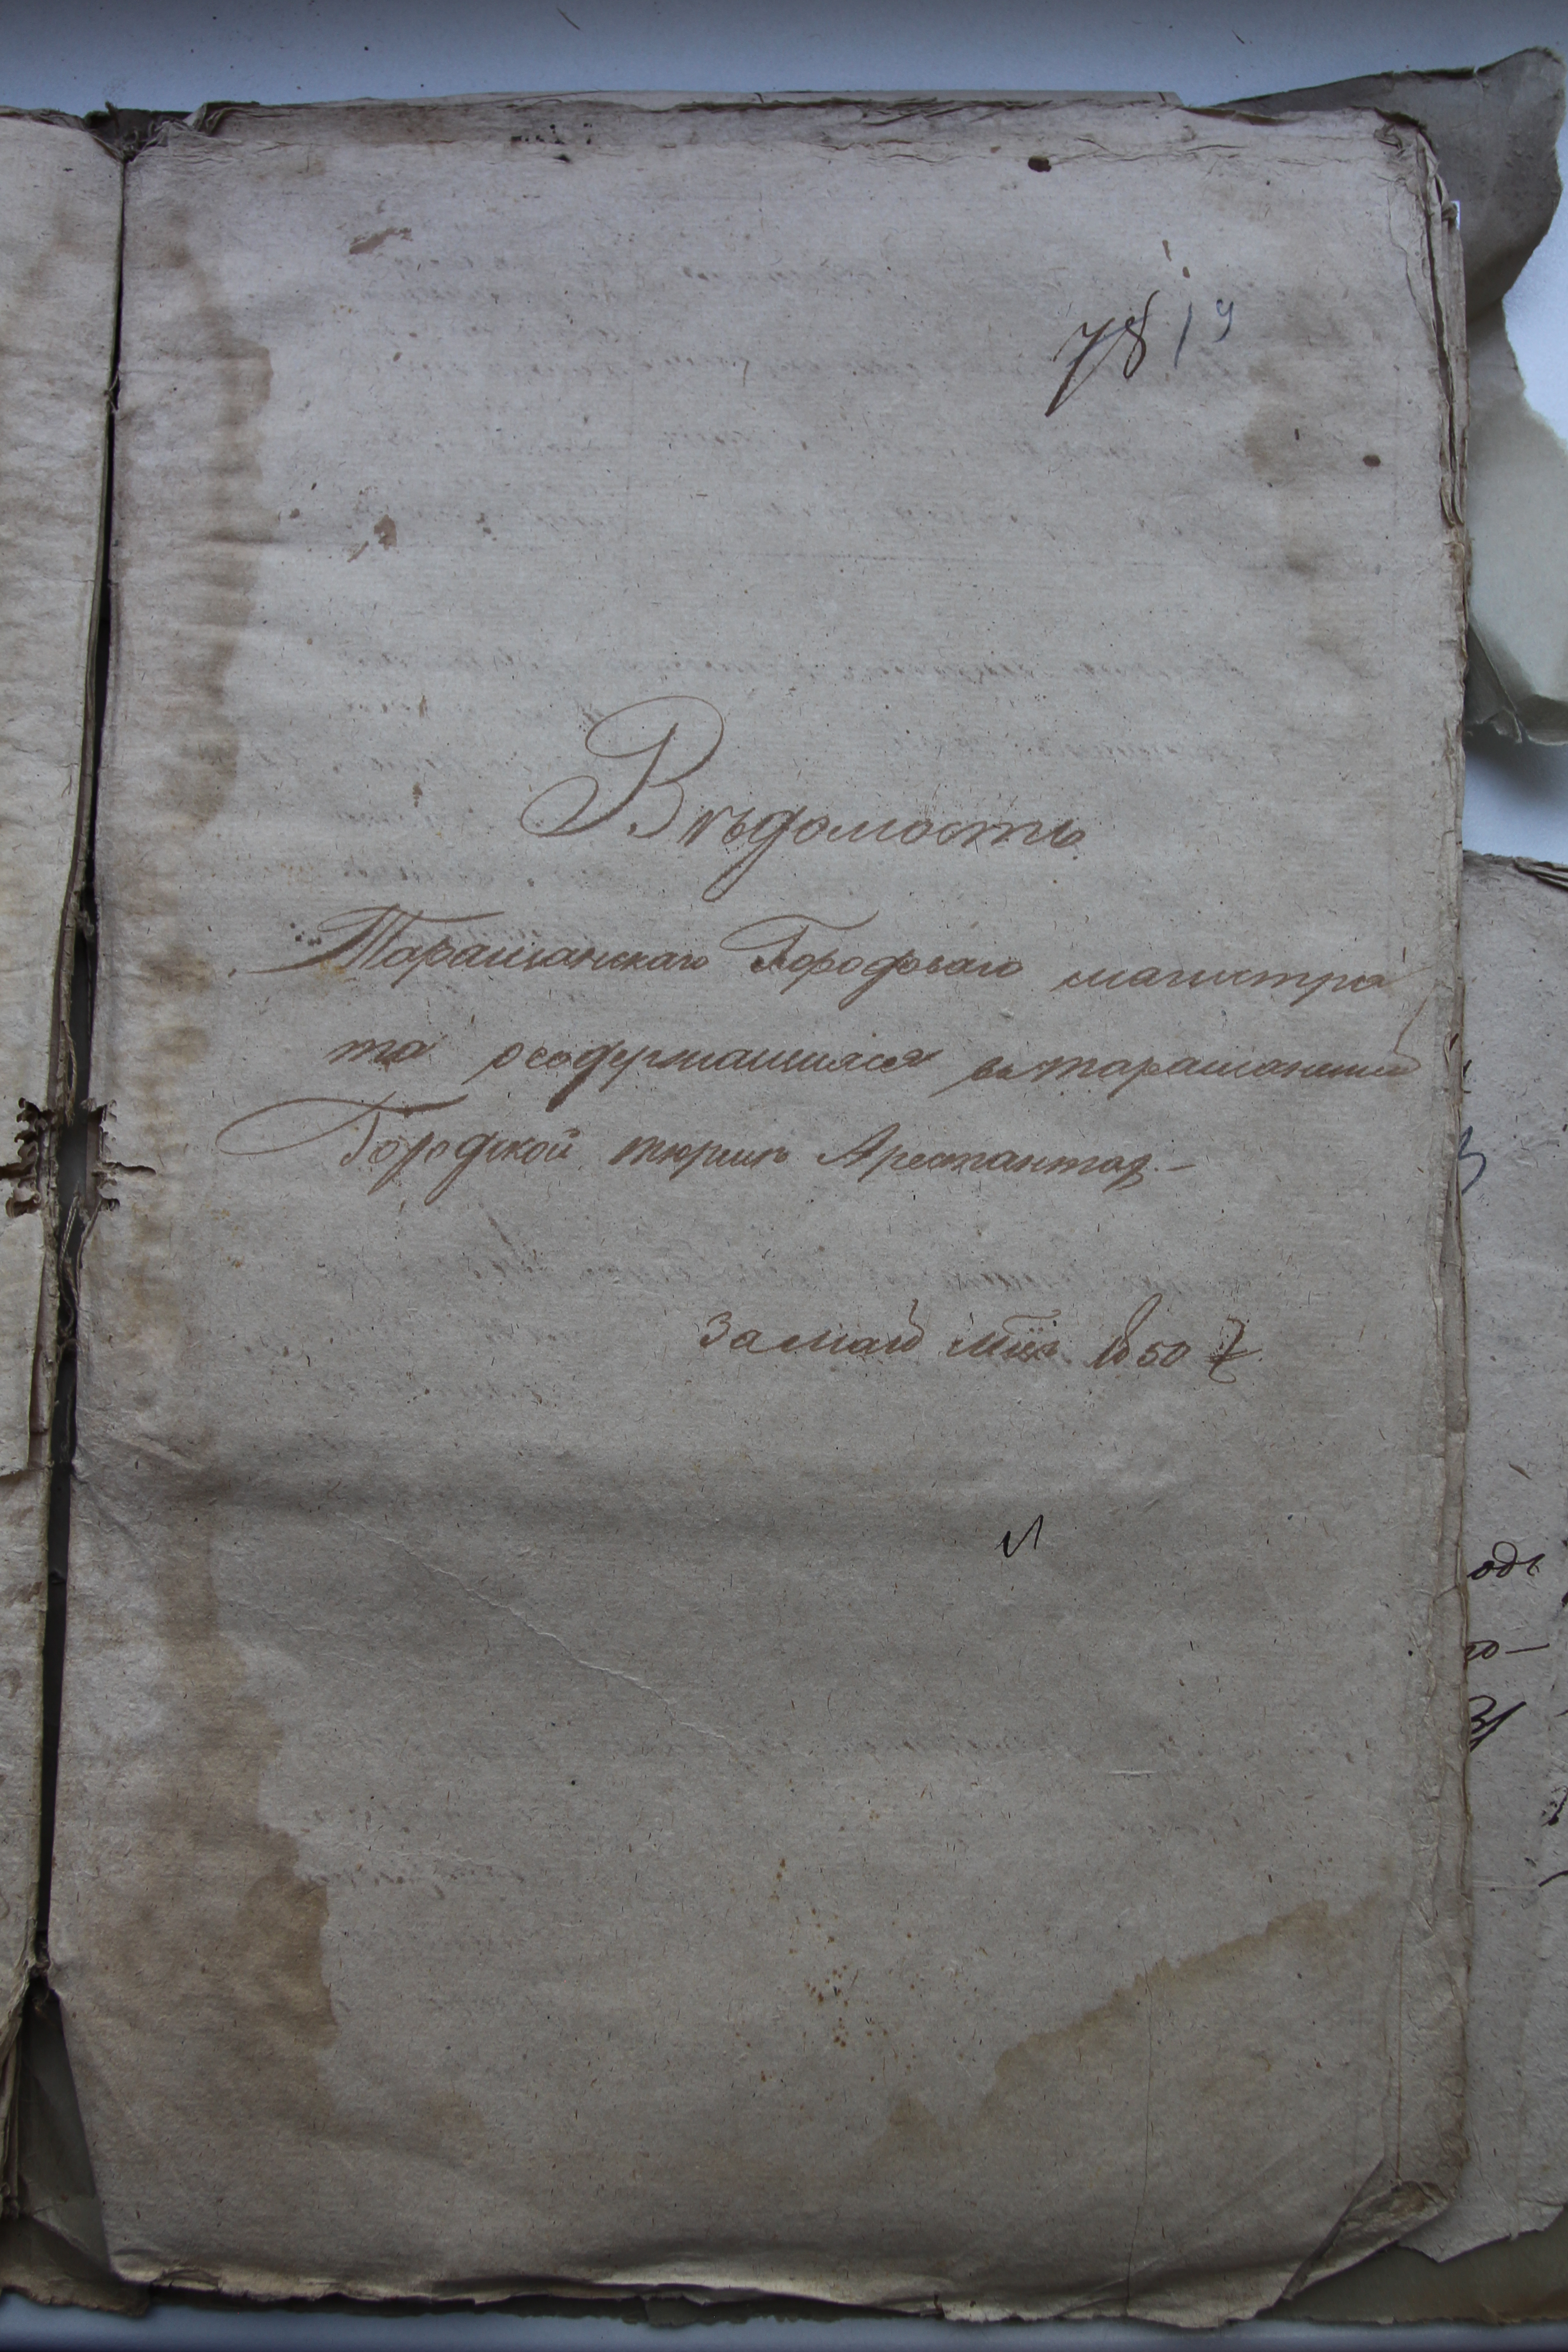 78 19
Вѣдомость
Таращанскаго Городоваго магистра
та осодержащихся въ таращанской
Городской тюрмѣ Арестантах
За май мцъ 1850 г